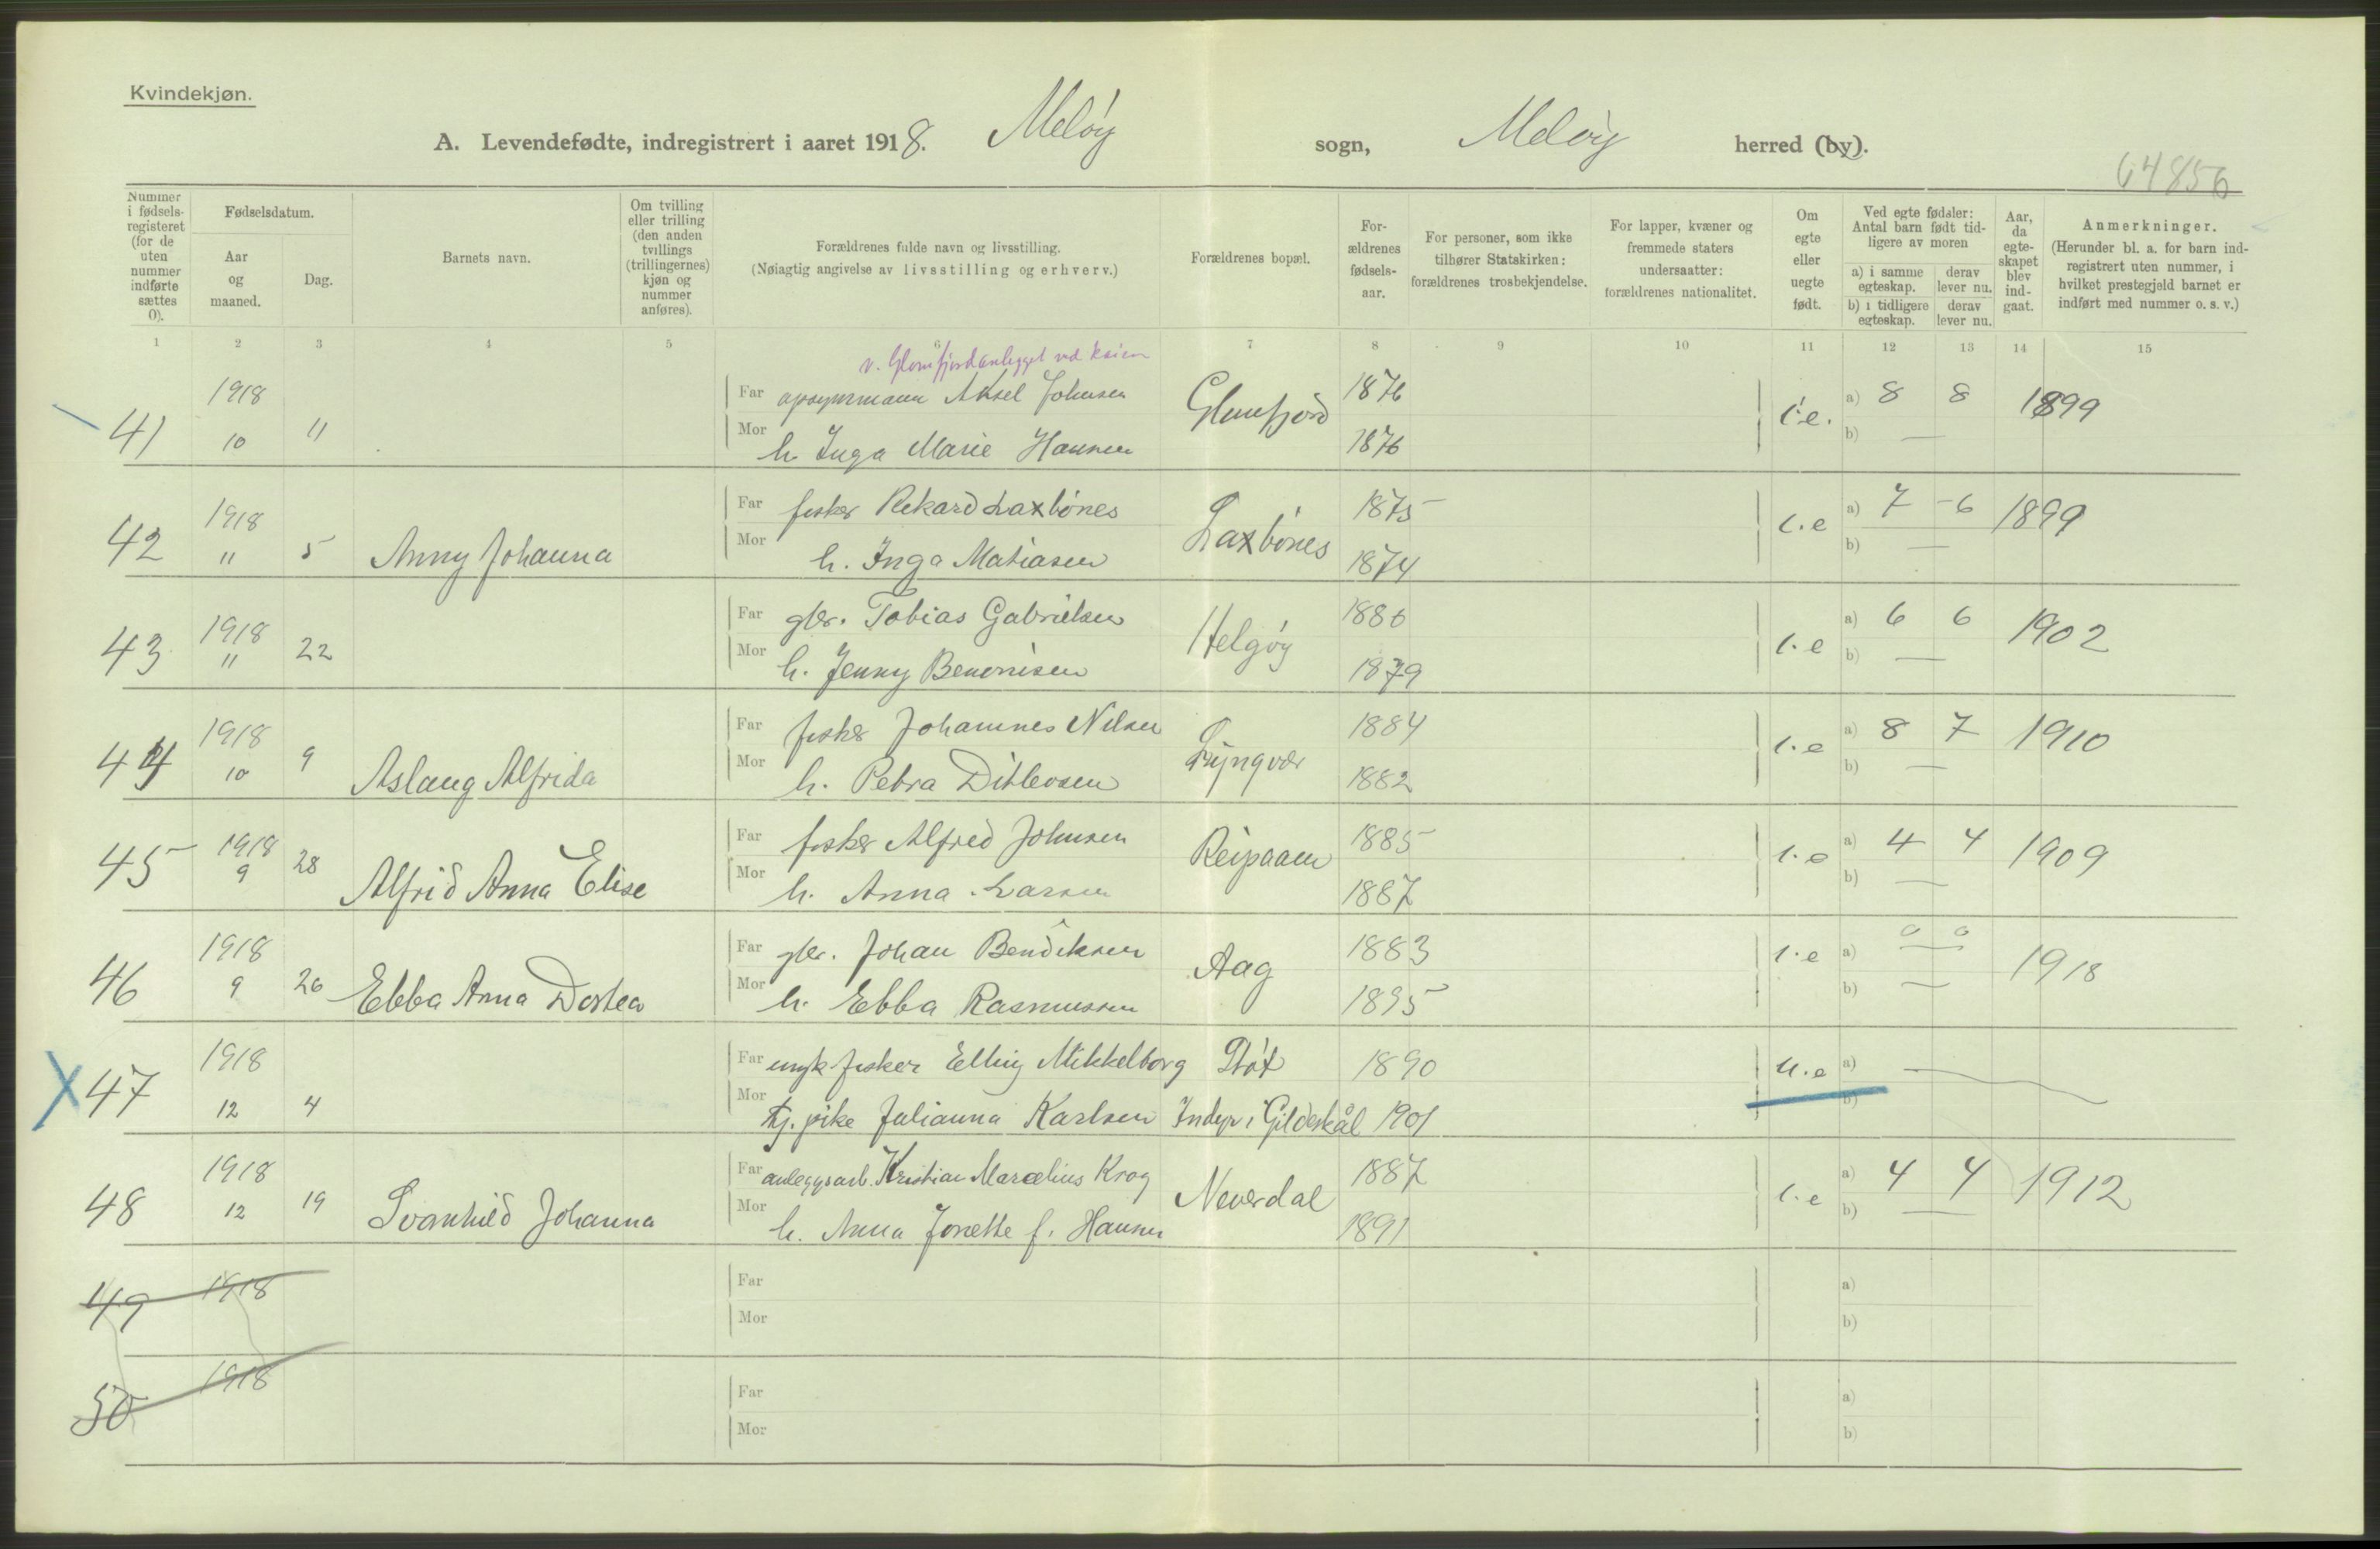 Kvindekjøn.
A. Levendefødte, indregistrert i aaret 1918. Meløy sogn, Meløy herred (by).
64856
Nummer i fødsels-registeret (for de uten nummer indførte sættes 0).
Fødselsdatum.
Aar og maaned.
Dag.
Barnets navn.
Om tvilling eller trilling (den anden tvillings (trillingernes) kjøn og nummer anføres).
Forældrenes fulde navn og livsstilling.
(Nøiagtig angivelse av livsstilling og erhverv.)
Forældrenes bopæl.
For-ældrenes fødsels-aar.
For personer, som ikke tilhører Statskirken: forældrenes trosbekjendelse.
For lapper, kvæner og fremmede staters undersaatter: forældrenes nationalitet.
Om egte eller uegte født.
Ved egte fødsler: Antal barn født tid-ligere av moren
a) i samme egteskap. derav lever nu.
b) i tidligere egteskap. derav lever nu.
Aar, da egte-skapet blev ind-gaat.
Anmerkninger.
(Herunder bl. a. for barn ind-registrert uten nummer, i hvilket prestegjeld barnet er indført med nummer o. s. v.)
1 2 3 4 5 6 7 8 9 10 11 12 13 14 15
v. Glomfjordanlegget ved kaien
41 1918 10 11 Far opsynsmann Aksel Johnsen Glomfjord 1876 i.e. a) 8 8 1899
Mor h. Inga Marie Hansen 1876 b) —
42 1918 " 5 Anny Johanna Far fisker Rikard Laxbønes Laxbønes 1875 i.e a) 7 - 6 1899
Mor h. Inga Matiasen 1874 b) —
43 1918 " 22 Far gbr. Tobias Gabrielsen Helgøy 1880 i.e a) 6 6 1902
Mor h. Jenny Benonisen 1879 b) —
44 1918 10 9 Aslaug Alfrida Far fisker Johannes Nilsen Lyngvær 1884 i.e a) 8 7 1910
Mor h. Petra Ditlevsen 1882 b) —
45 1918 9 28 Alfrid Anna Elise Far fisker Alfred Johnsen Reipaaen 1885 i.e a) 4 4 1909
Mor h. Anna Larsen 1887 b) —
46 1918 9 26 Ebba Anna Dortea Far gbr. Johan Bendiksen Aag 1883 i.e a) 0 0 1918
Mor h. Ebba Rasmussen 1895 b) —
X 47 1918 12 4 Far ungk. fisker Elling Mikkelborg Støt 1890 u.e a) —
Mor tj. pike Julianna Karlsen Indyr i Gildeskål 1901 b)
48 1918 12 19 Svanhild Johanna Far anleggsarb. Kristian Marcelius Krog Neverdal 1887 i.e a) 4 4 1912
Mor h. Anna Jonette f. Hansen 1891 b) —
49 1918 Far a)
Mor b)
50 1918 Far a)
Mor b)